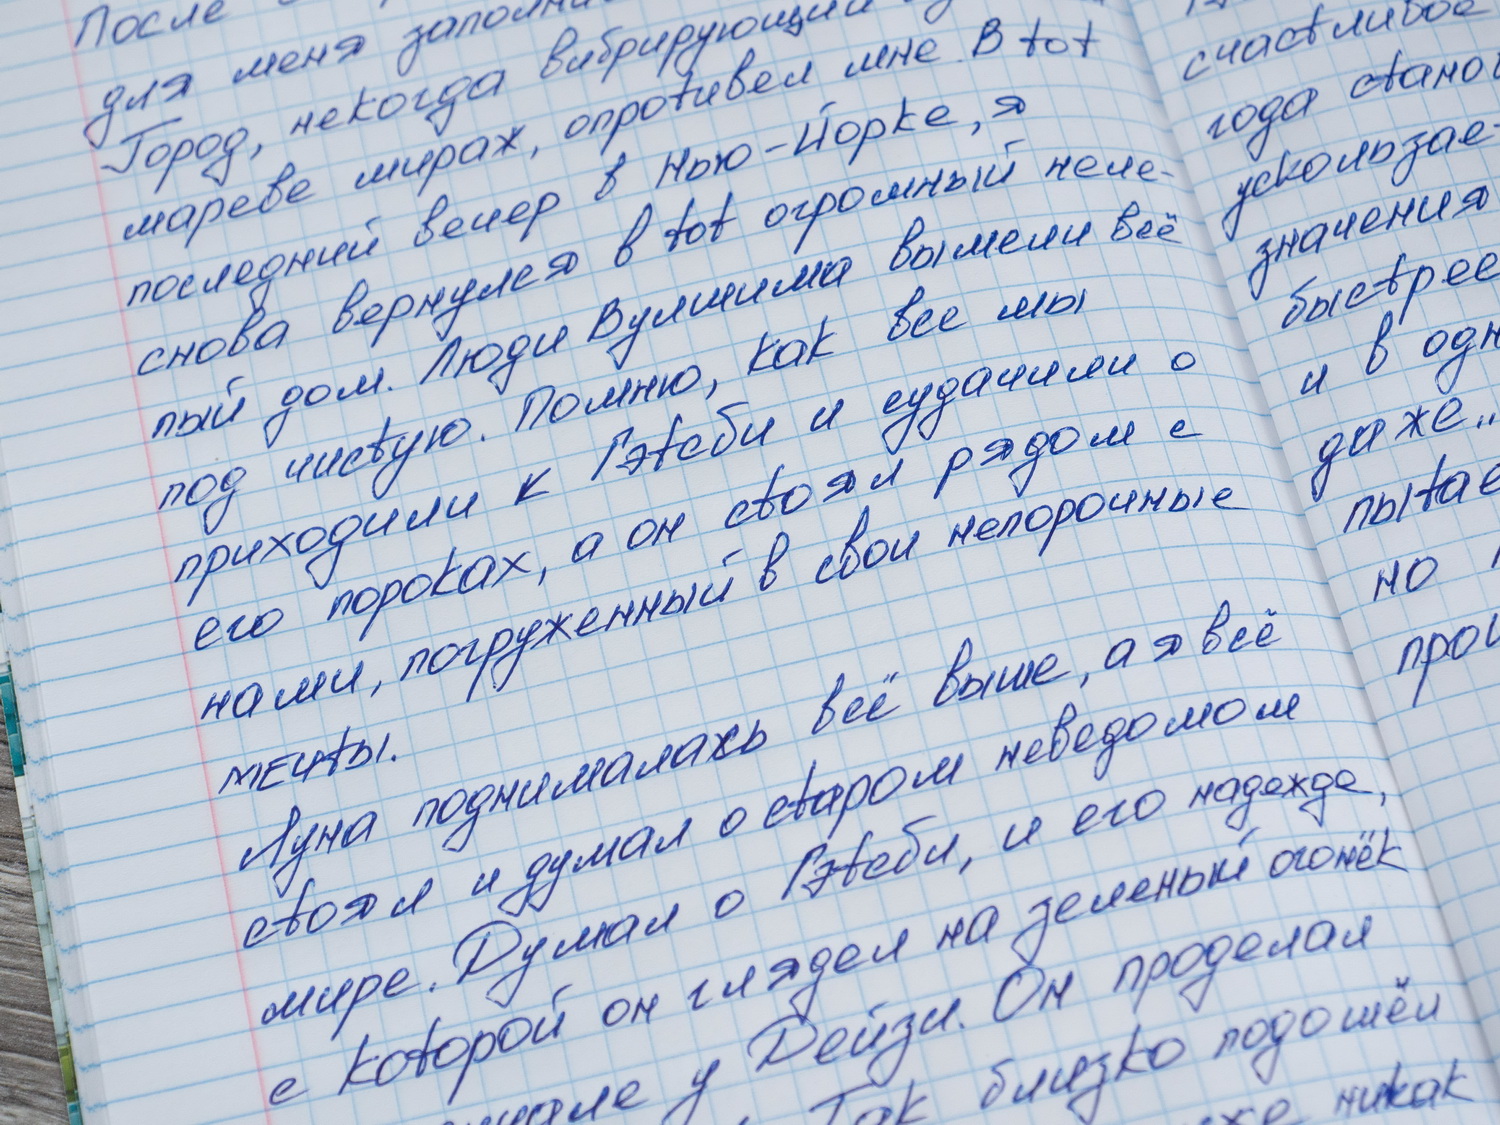 После
для меня
Город, некогда вибрирующий
мареве мирах, опротивел мне. В тот
последний вечер в Нью-Йорке, я
снова вернулся в тот огромный неле-
пый дом. Люди Вулшима вымели всё
под чистую. Помню, как все мы
приходили к Гэтсби и судачили о
его пороках, а он стоял рядом с
нами, погруженный в свои непорочные
мечты.
Луна поднималась всё выше, а я всё
стоял и думал о старом неведомом
мире. Думал о Гэтсби, и его надежде,
с которой он глядел на зеленый огонёк
у Дейзи. Он проделал
Так близко подошёл
никак
счастливое
года
значения
быстрее
и в
даже...
но